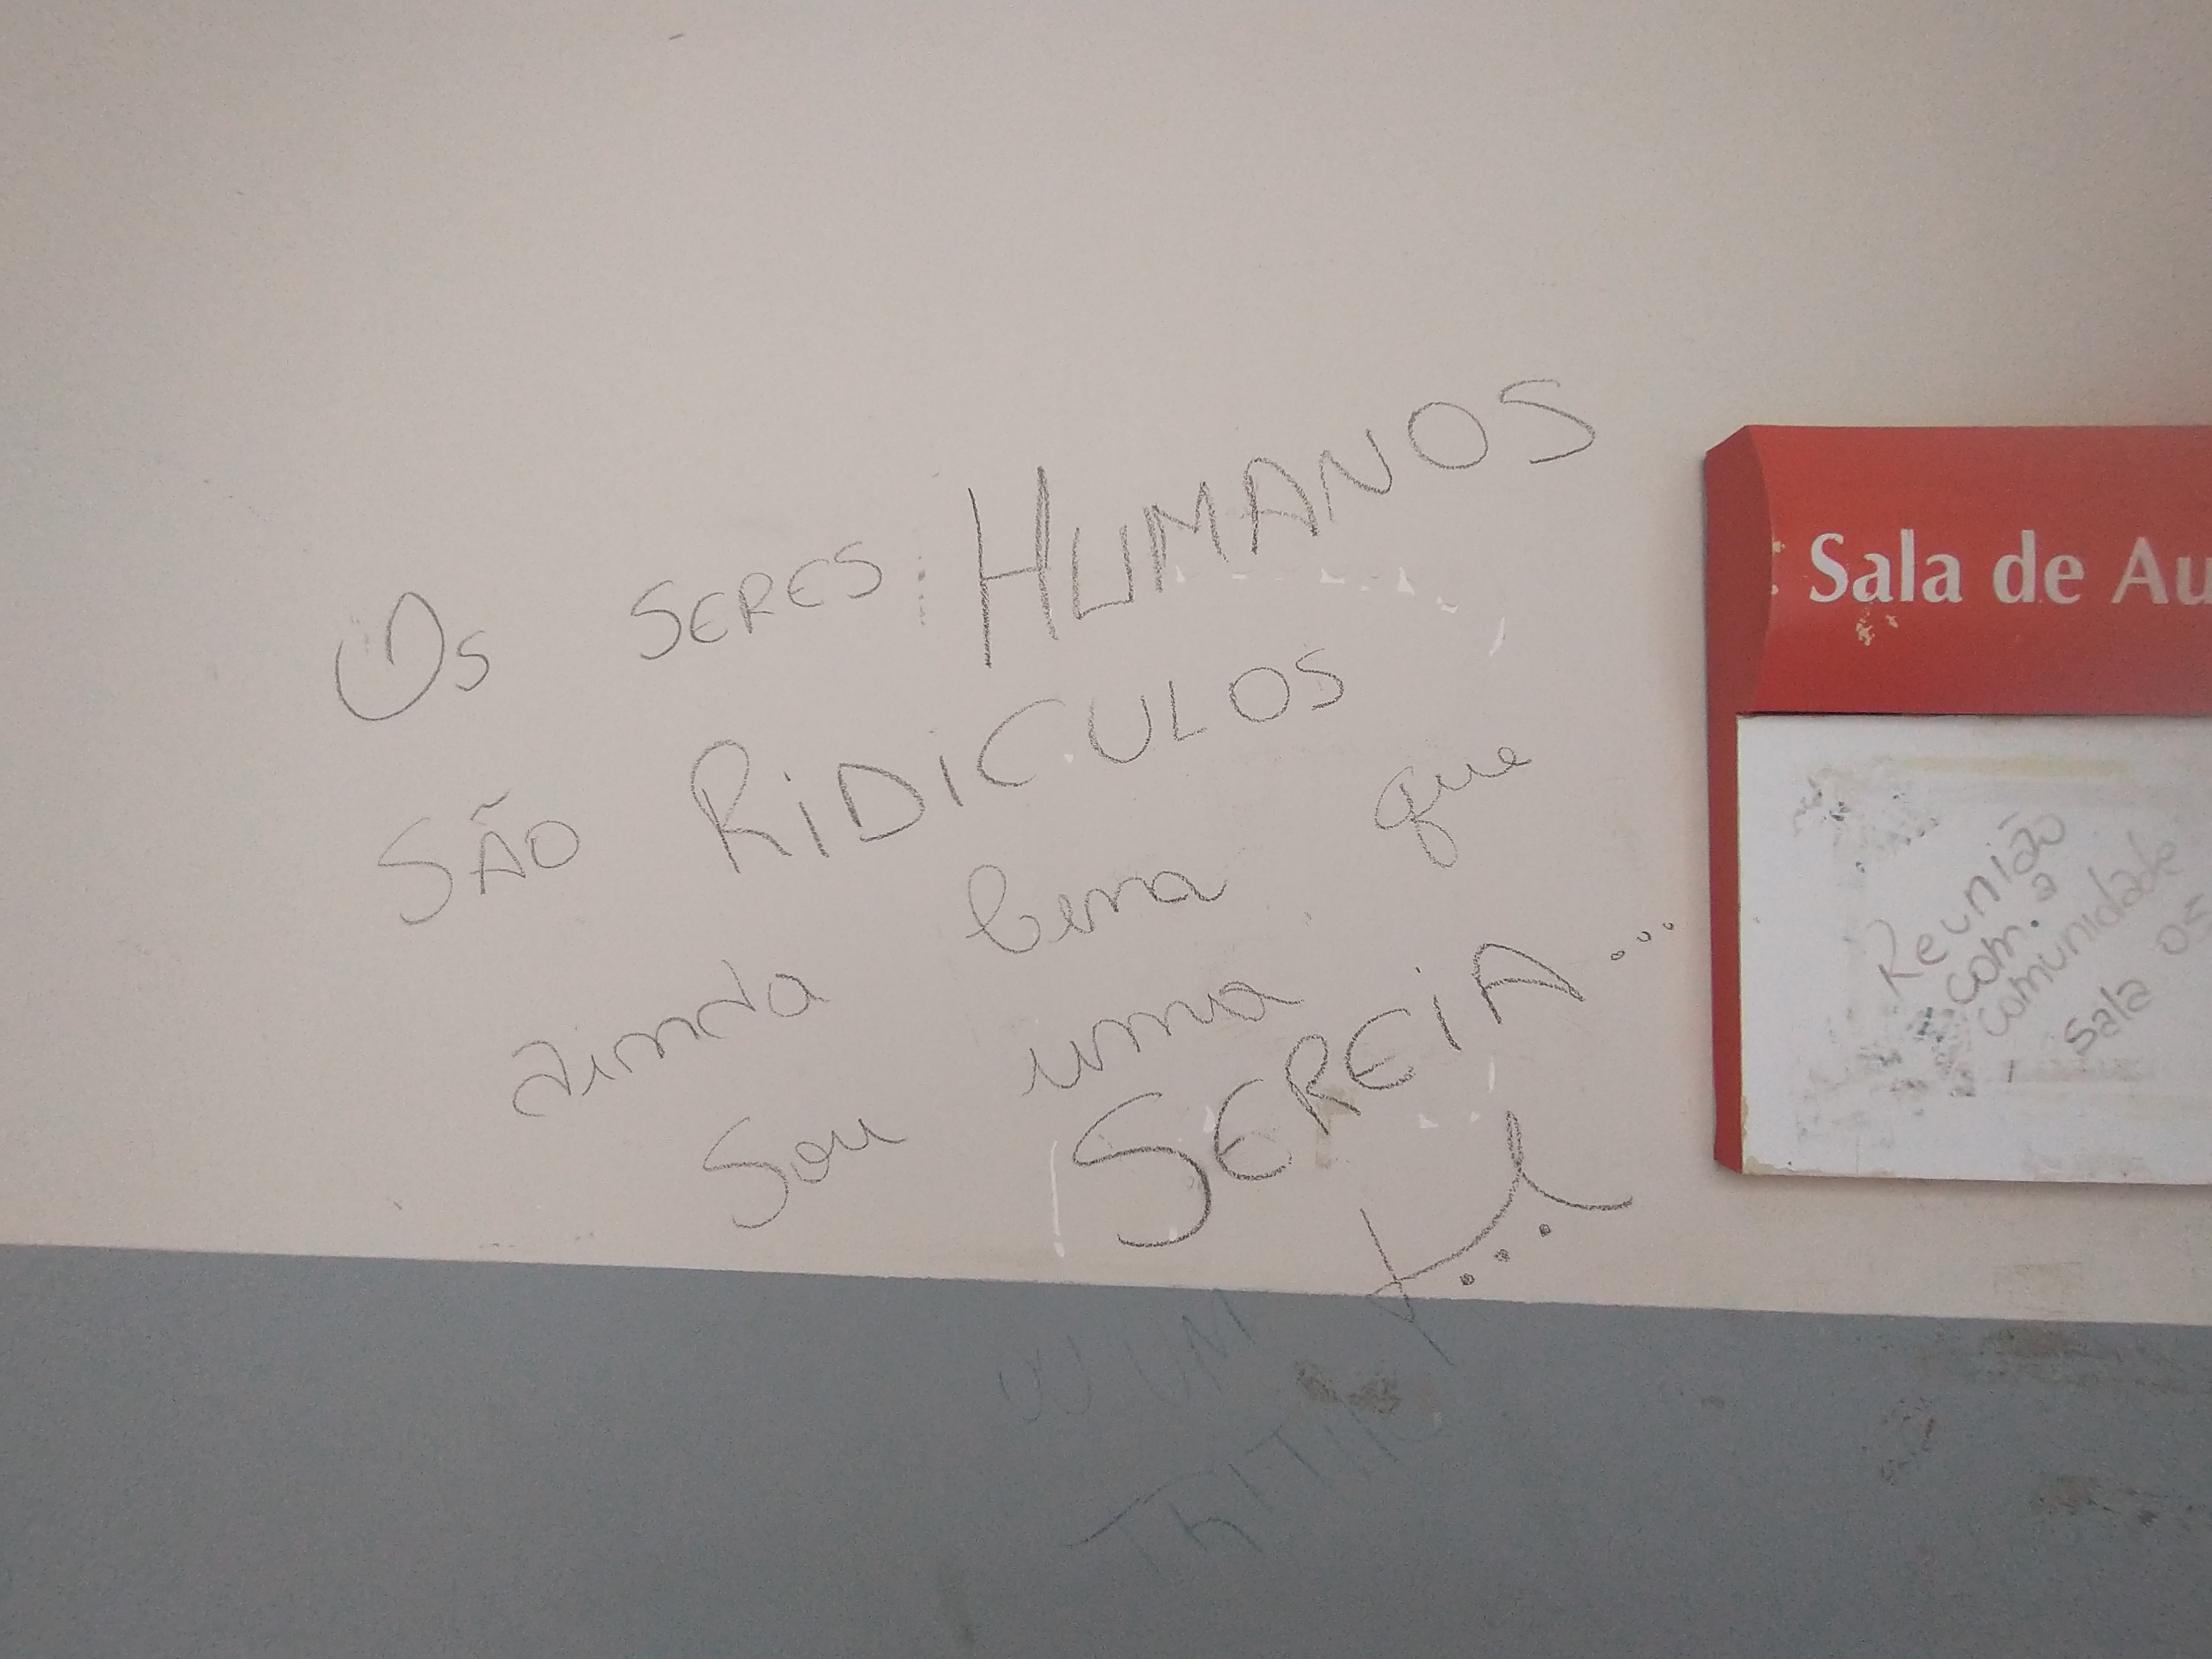 Os SERES HUMANOS
SÃO RIDICULOS
ainda bem que
Sou uma SEREIA...
Sala de Au
Reunião
com. a
comunidade
Sala 05